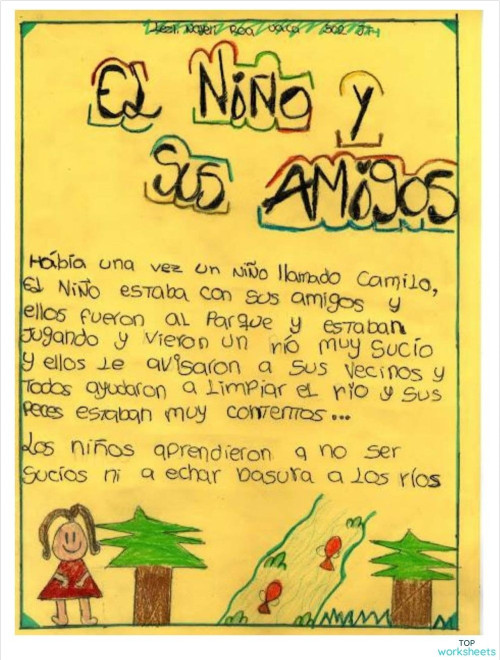 Roa
EL NIÑO Y
SUS AMIGOS
Había una vez un niño llamado Camilo,
El Niño estaba con sus amigos y
ellos fueron al Parque y estaban
Jugando y vieron un río muy sucio
y ellos le avisaron a sus vecinos y
Todos ayudaron a Limpiar el río y sus
Peces estaban muy contentos...
Los niños aprendieron a no ser
sucios ni a echar basura a Los ríos
TOP
worksheets